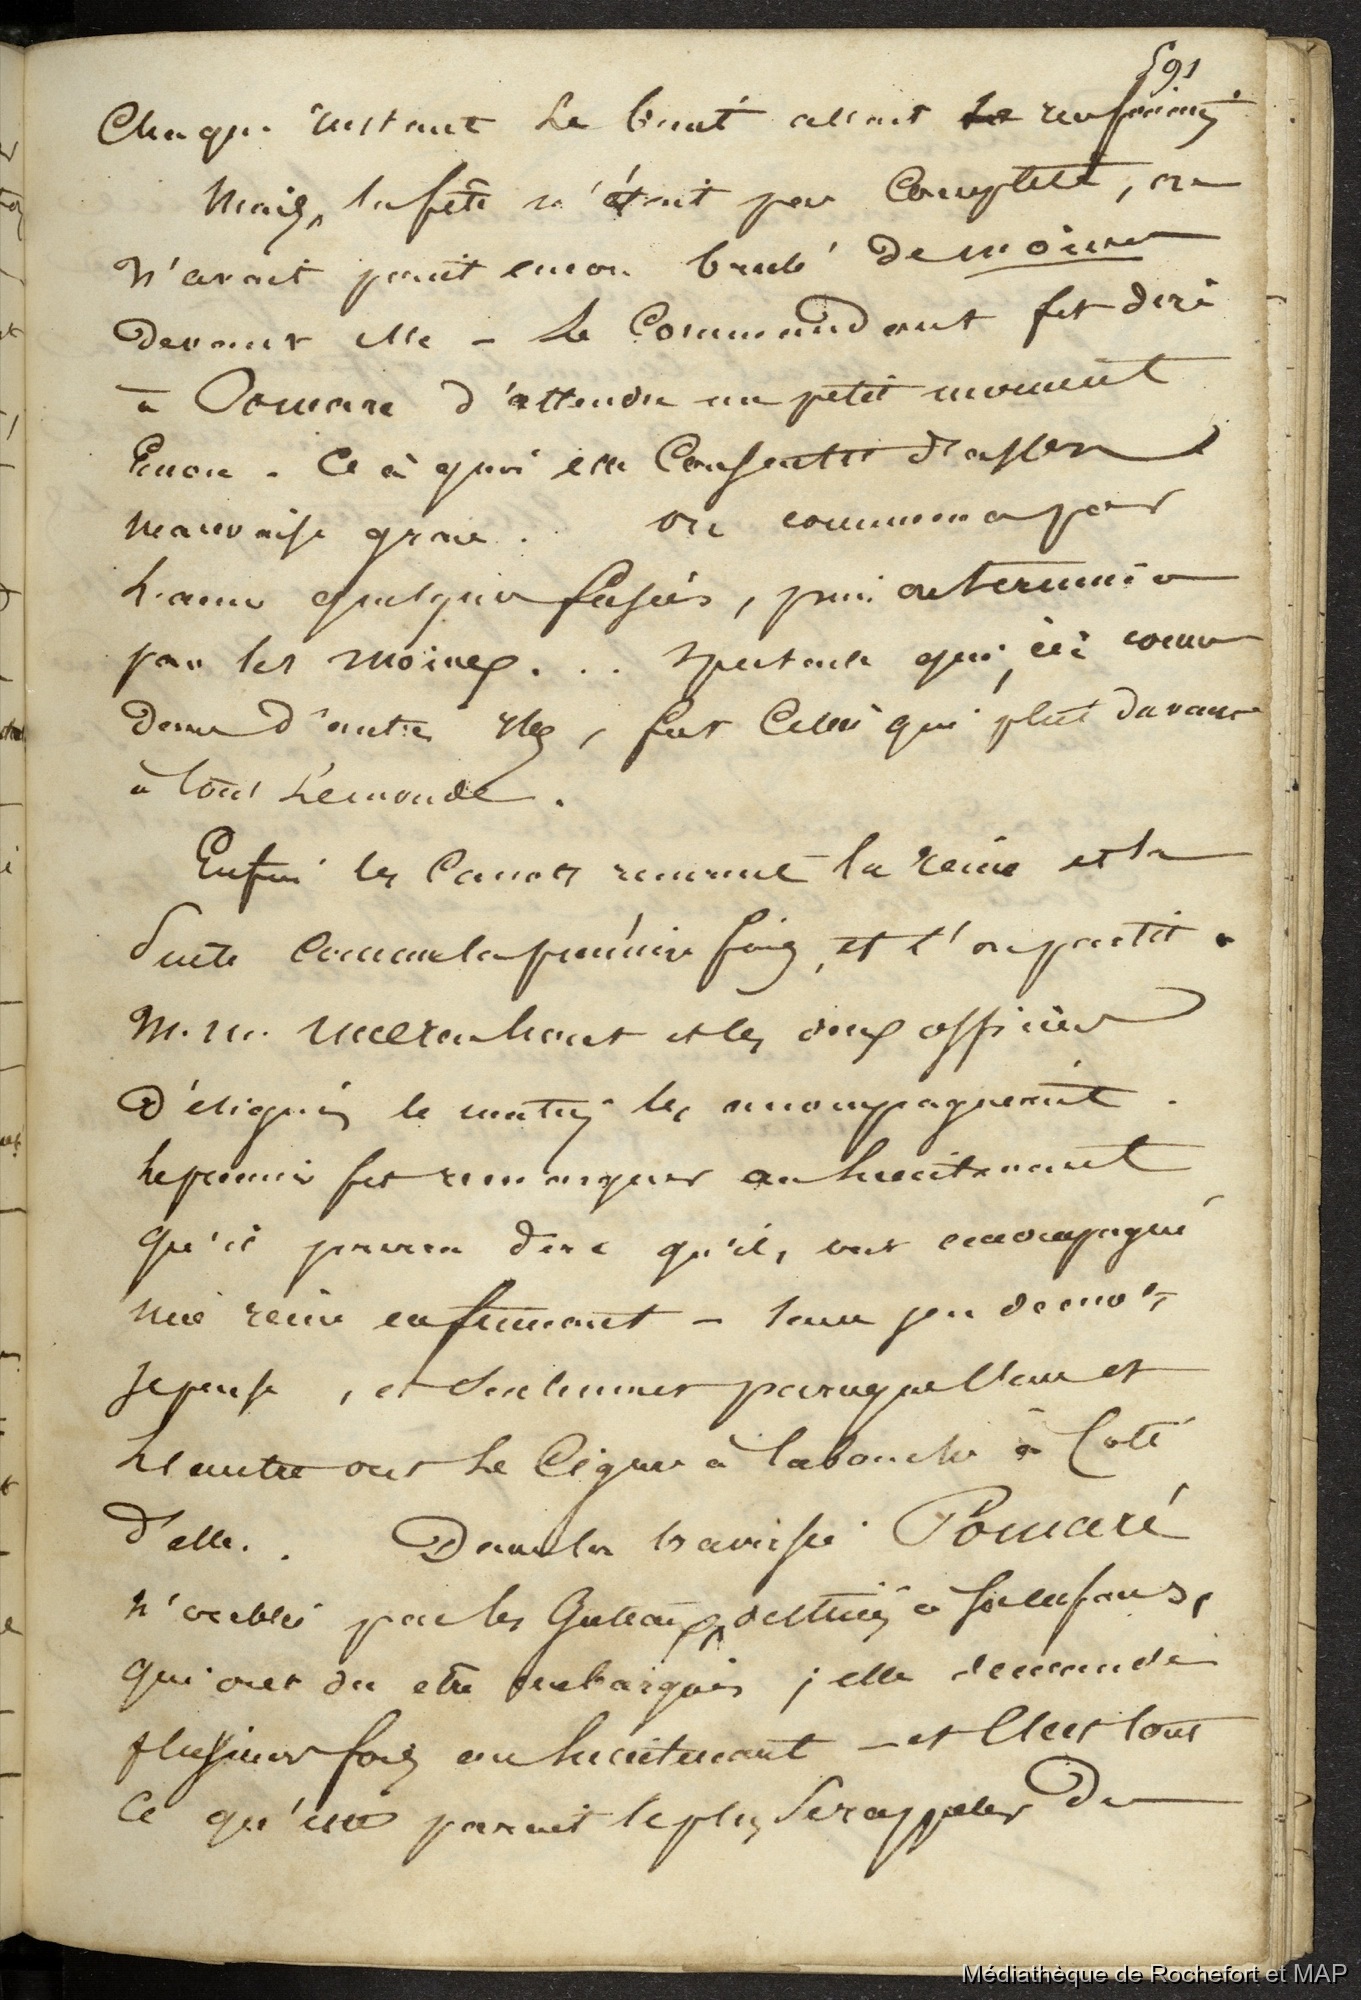 591
Chaque instant le bruit allait se renforçant
Mais, la fête n'était pas complette, on
N'avait point encor brulé de moines
devant elle – Le Commandant fit dire
à Pomare d'attendre un petit moment
Encor. Ce à quoi elle Consentit d'assez
mauvaise grace. on commença par
Lancer quelques fusées, puis on termina
par les moines... Spectacle qui, ici comme
dans d'autres iles, fut Celui qui plut davantage
à tout Le monde.
Enfin les Canots ramenent la reine et sa
Suite comme la première fois, et l'on partit.
M. M. Moerenhout et les deux officiers
Désignés le matin les accompagnerent.
Le premier fit remarquer au Lieutenant
qu'il pourra dire qu'il, ont accompagné
une reine en fumant – Sans jeu de mots
je pense, et seulement parceque l'un et
L'autre ont Le Cigare à la bouche à Coté
d'elle.. Dans la traversée Pomaré
N'oublie pas les Gateaux, destinés à Ses enfans,
qui ont du etre embarqués; elle demande
plusieurs fois au Lieutenant – et C'est tout
Ce qu'elle parait le plus Se rappeler De
Médiathèque de Rochefort et MAP